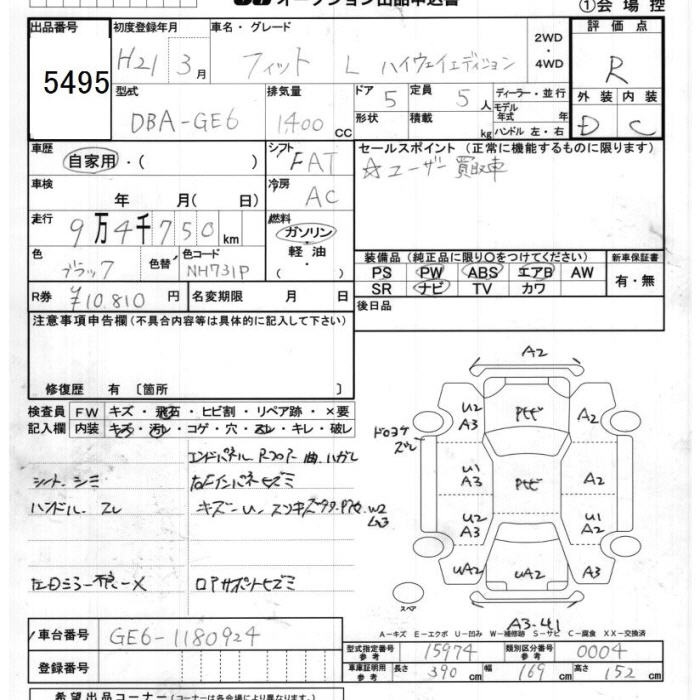 オークション出品申込書
①会場控
出品番号 5495
初度登録年月 H21 3月
車名・グレード フィット L ハイウェイエディション
2WD ・ 4WD
評価点 R
型式 DBA-GE6
排気量 1400 CC
ドア 5 定員 5人
形状 積載 kg
ディーラー・並行
モデル年式 年
ハンドル 左・右
外装 内装
D C
車歴 自家用・( )
シフト FAT
セールスポイント (正常に機能するものに限ります)
☆ユーザー買取車
車検 年 月( 日)
冷房 AC
走行 9万4千750km
燃料 ガソリン・軽油・( )
色 ブラック 色替
色コード NH731P
装備品 (純正品に限り○をつけてください) 新車保証書
PS PW ABS エアB AW 有・無
SR ナビ TV カワ
R券 ¥10,810円 名変期限 月 日
後日品
注意事項申告欄 (不具合内容等は具体的に記入して下さい)
修復歴 有 〔箇所 〕
検査員 FW キズ・飛石・ヒビ割・リペア跡・×要
記入欄 内装 キズ・汚レ・コゲ・穴・スレ・キレ・破レ
シート、シミ
ハンドル スレ
左Dミラー不良-X
エンドパネル
右Fインパネキズミ
ロアサポートヒズミ
A2
U2 A3
Pセビ
A2
U1 A3
Pセビ
A2
U2 A3
U1 A2
UA2
UA2
A3
スペア
A3-41
A-キズ E-エクボ U-凹み W-補修跡 S-サビ C-腐食 XX-交換済
車台番号 GE6-1180924
型式指定番号 参考 15974 類別区分番号 参考 0004
登録番号
車庫証明用 参考 長さ 390cm 幅 169cm 高さ 152cm
希望出品コーナー (コーナーは各会場により異なります)